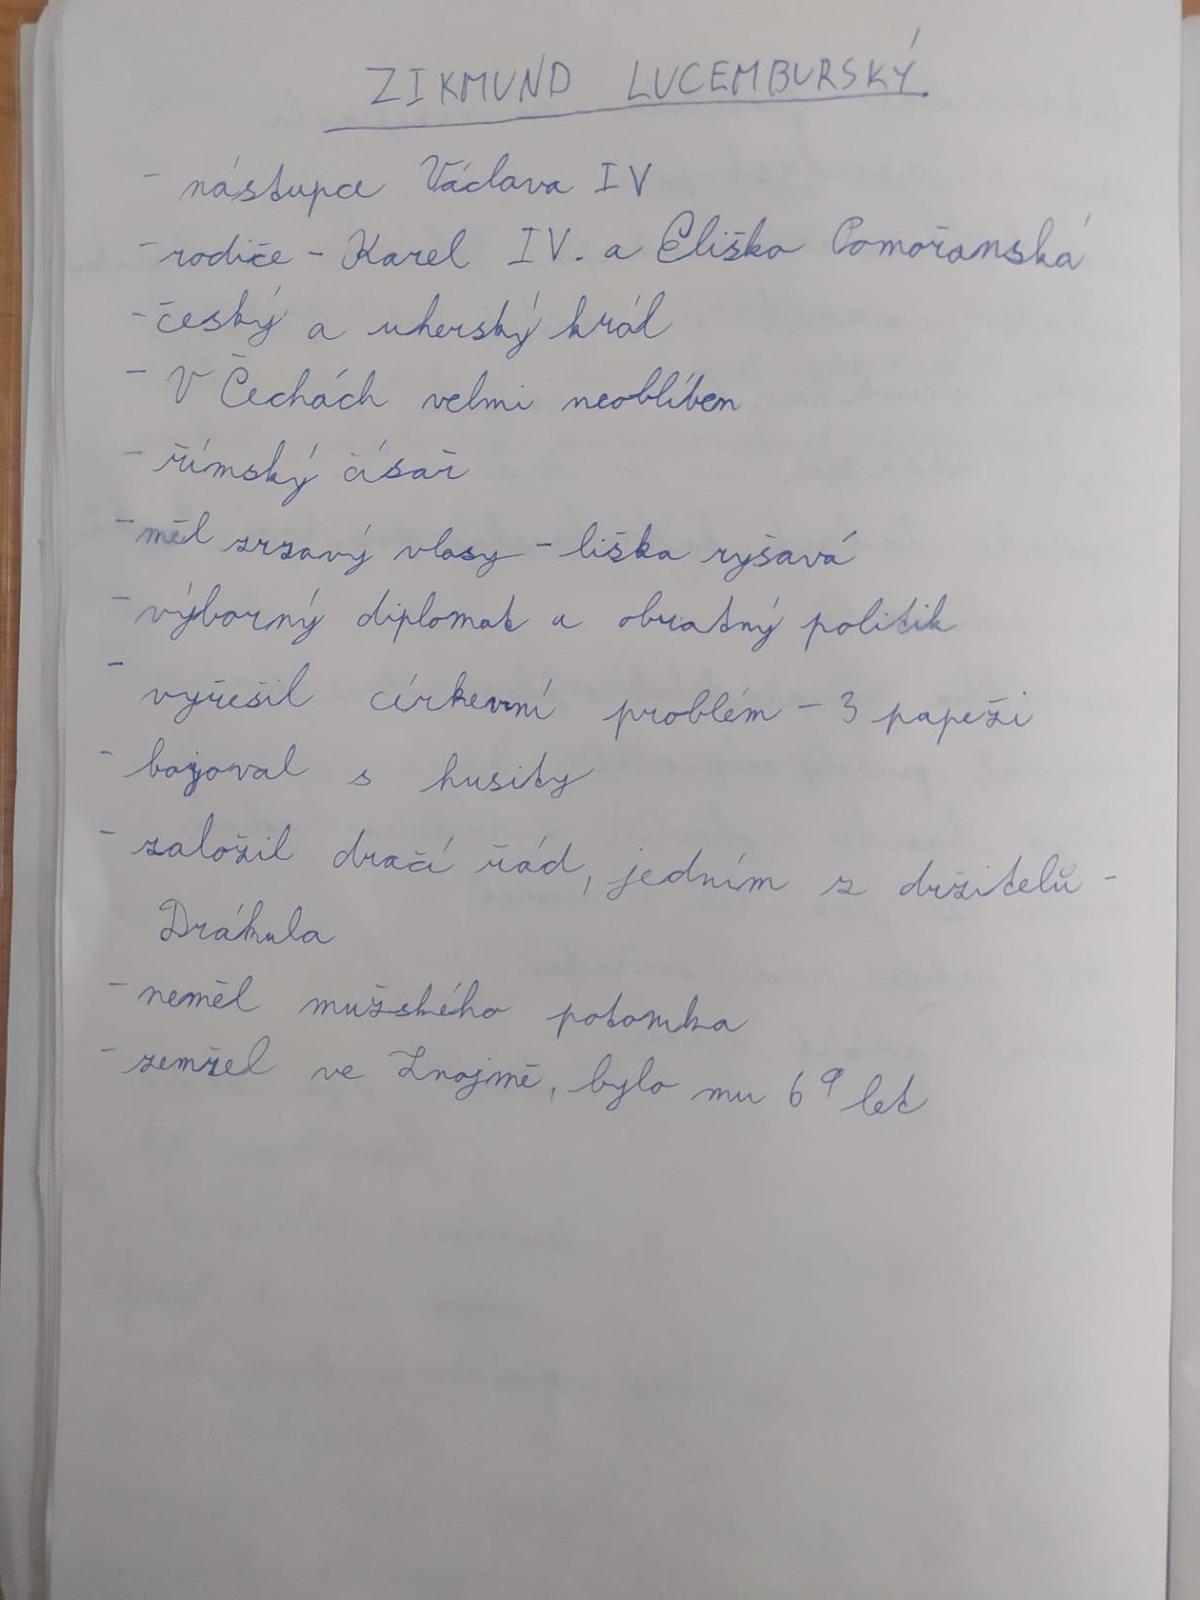 ZIKMUND LUCEMBURSKÝ
- nástupce Václava IV
- rodiče - Karel IV. a Eliška Pomořanská
- český a uherský král
- V Čechách velmi neoblíben
- římský císař
- měl zrzavý vlasy - liška ryšavá
- výborný diplomat a obratný politik
- vyřešil církevní problém - 3 papeži
- bojoval s husity
- založil dračí řád, jedním z držitelů -
Drákula
- neměl mužského potomka
- zemřel ve Znojmě, bylo mu 69 let